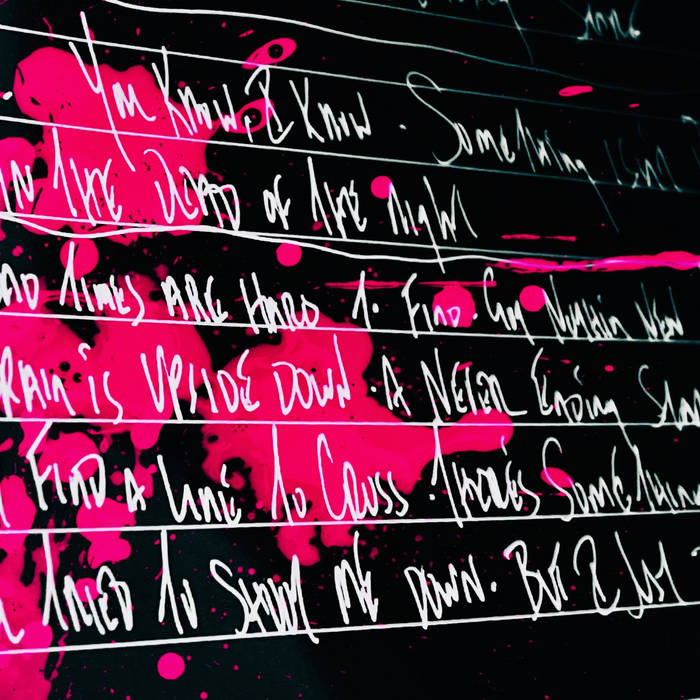 You Know, I Know. Something isn't
IN THE DEAD OF THE Night
TIMES ARE HARD To FIND. Got Nothin NEW
BRAIN is UPSIDE DOWN. A NEVER Ending
FIND A LINE To CROSS. There's SOMETHING
TRIED To SLOW ME DOWN. But I JUST